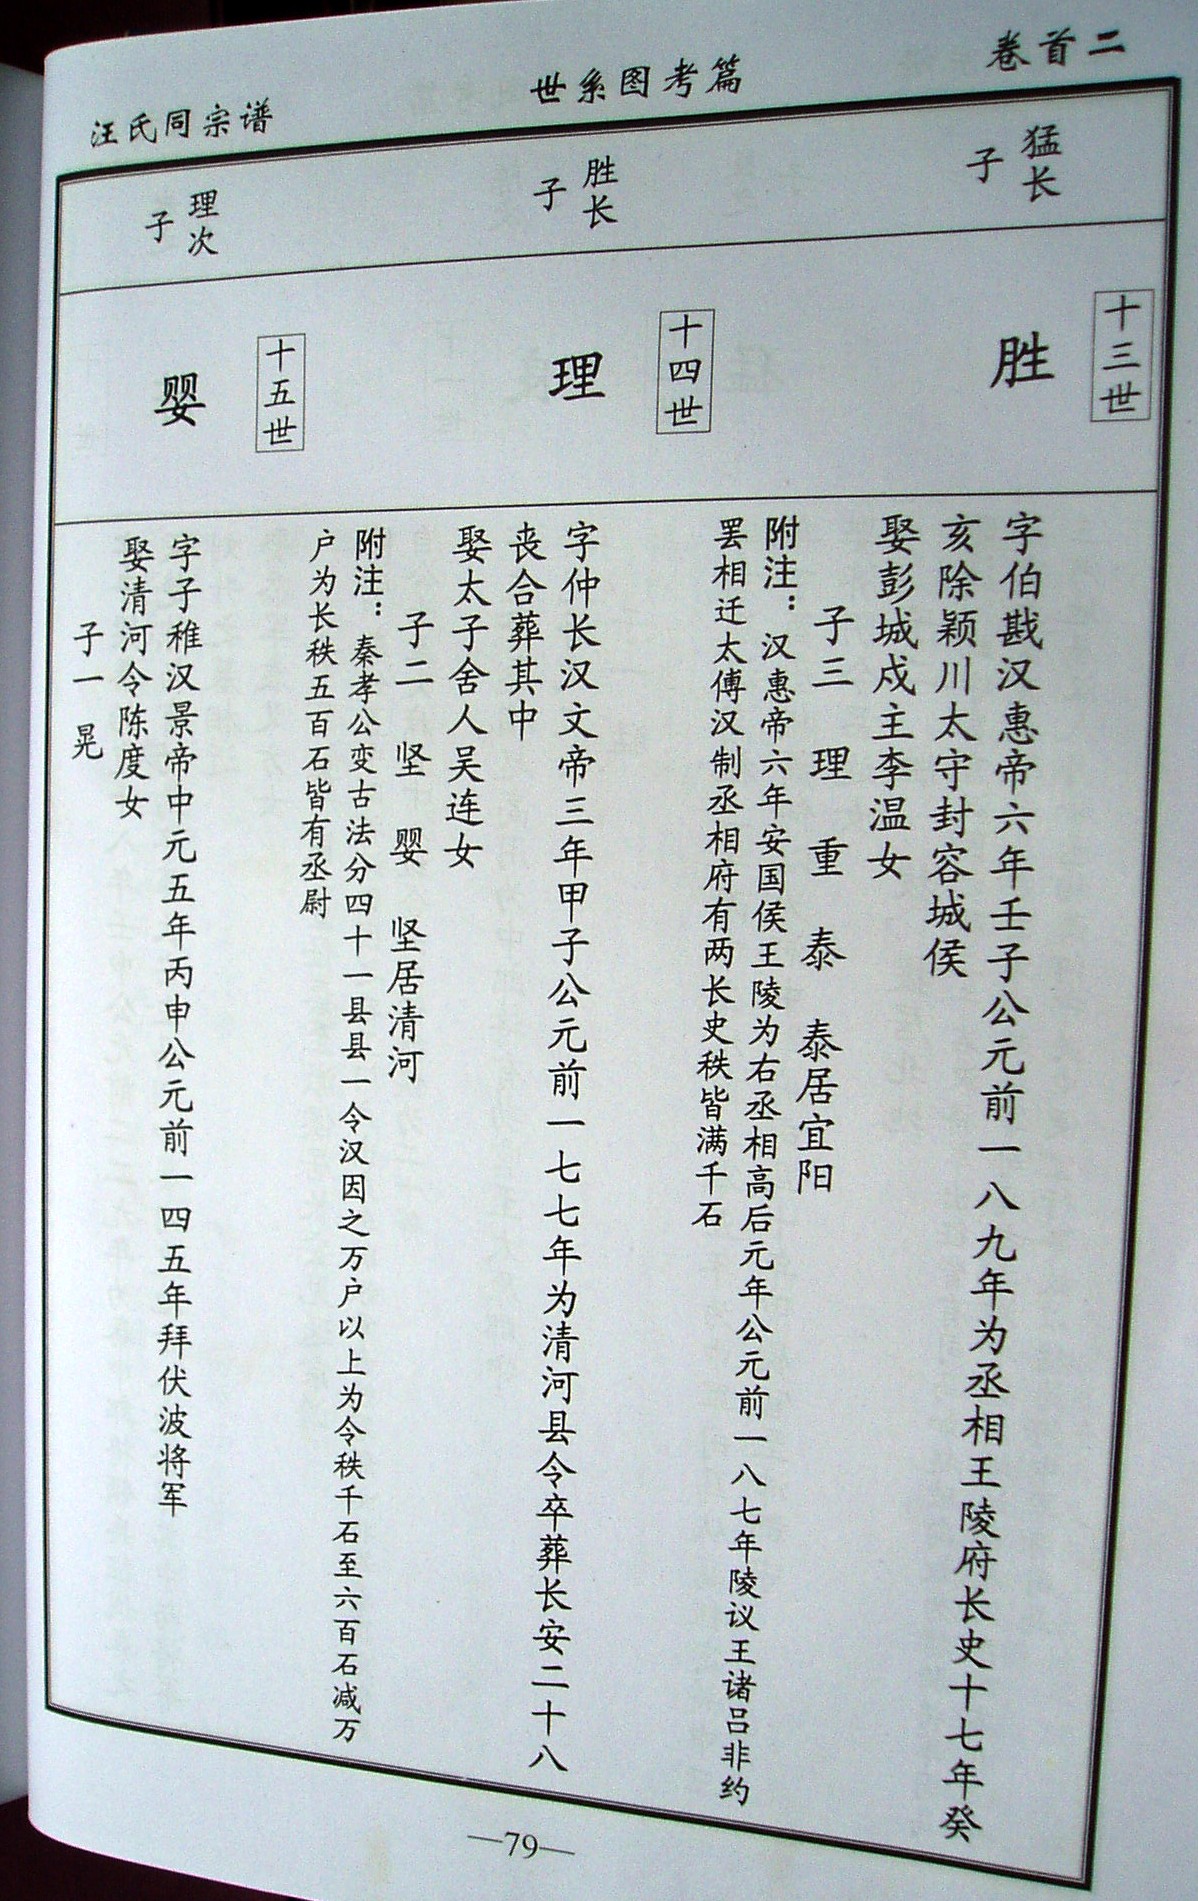 卷首二
世系图考篇
汪氏同宗谱
十三世
猛长
子
胜
字伯戡汉惠帝六年壬子公元前一八九年为丞相王陵府长史十七年癸
亥除颖川太守封容城侯
娶彭城戍主李温女
子三 理 重 泰 泰居宜阳
附注：汉惠帝六年安国侯王陵为右丞相高后元年公元前一八七年陵议王诸吕非约
罢相迁太傅汉制丞相府有两长史秩皆满千石
十四世
胜长
子
理
字仲长汉文帝三年甲子公元前一七七年为清河县令卒葬长安二十八
丧合葬其中
娶太子舍人吴连女
子二 坚 婴 坚居清河
附注：秦孝公变古法分四十一县县一令汉因之万户以上为令秩千石至六百石减万
户为长秩五百石皆有丞尉
十五世
理次
子
婴
字子稚汉景帝中元五年丙申公元前一四五年拜伏波将军
娶清河令陈度女
子一 晃
—79—